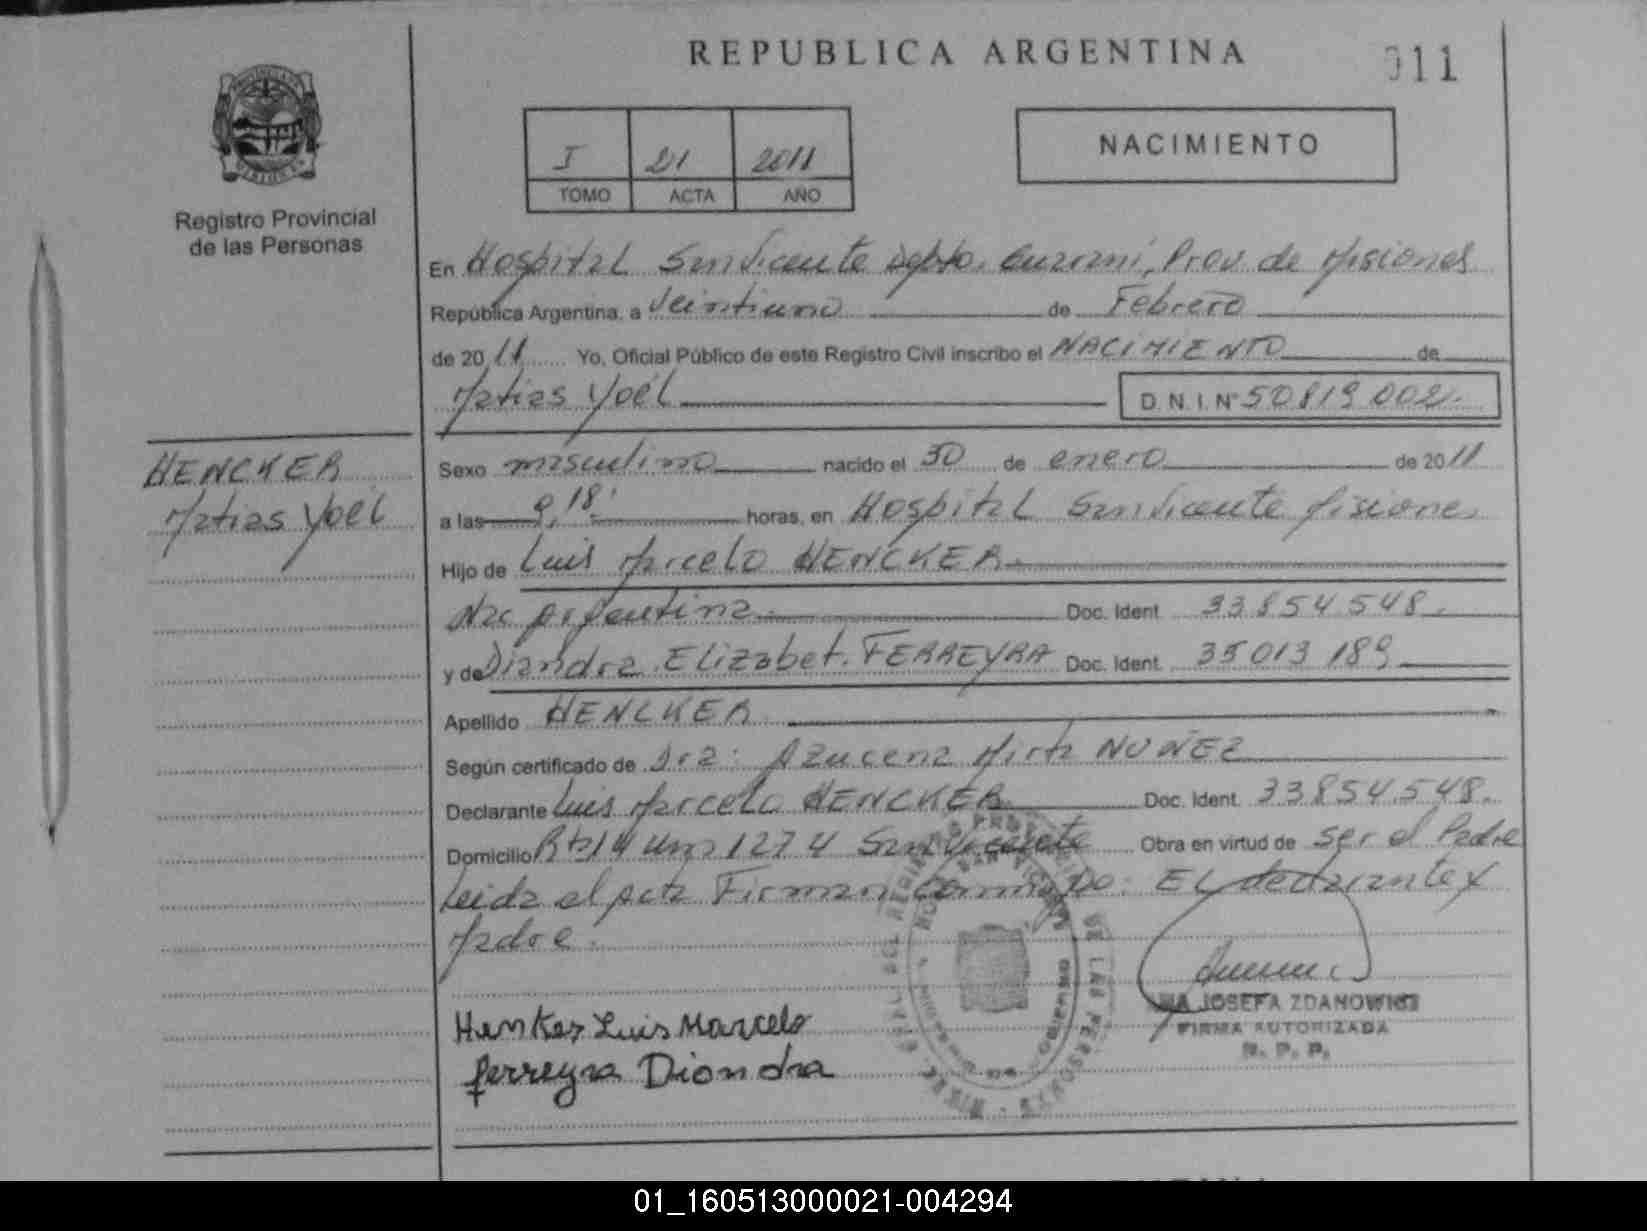 REPUBLICA ARGENTINA
011
I 21 2011
TOMO ACTA AÑO
NACIMIENTO
Registro Provincial
de las Personas
En Hospital San Vicente Depto. Guarani, Prov. de Misiones
República Argentina, a Veintiuno de Febrero
de 2011 Yo, Oficial Público de este Registro Civil inscribo el NACIMIENTO de
Matias Yoél D.N.I. Nº 50819002.
HENCKER
Matias Yoél
Sexo masculino nacido el 30 de enero de 2011
a las 9,18' horas, en Hospital San Vicente Misiones
Hijo de Luis Marcelo HENCKER
Nac Argentina Doc. Ident. 33854548.
y de Diandra Elizabet. FERREYRA Doc. Ident. 35013189
Apellido HENCKER
Según certificado de Dra: Azucena Mirta NUÑEZ
Declarante Luis Marcelo HENCKER Doc. Ident. 33854.548.
Domicilio Rta 14 km 1274 San Vicente Obra en virtud de ser el Padre
Leida el Acta Firman conmigo: El declarante y
Madre.
Henker Luis Marcelo
ferreyra Diondra
JOSEFA ZDANOWICZ
FIRMA AUTORIZADA
R. P. P.
01_160513000021-004294